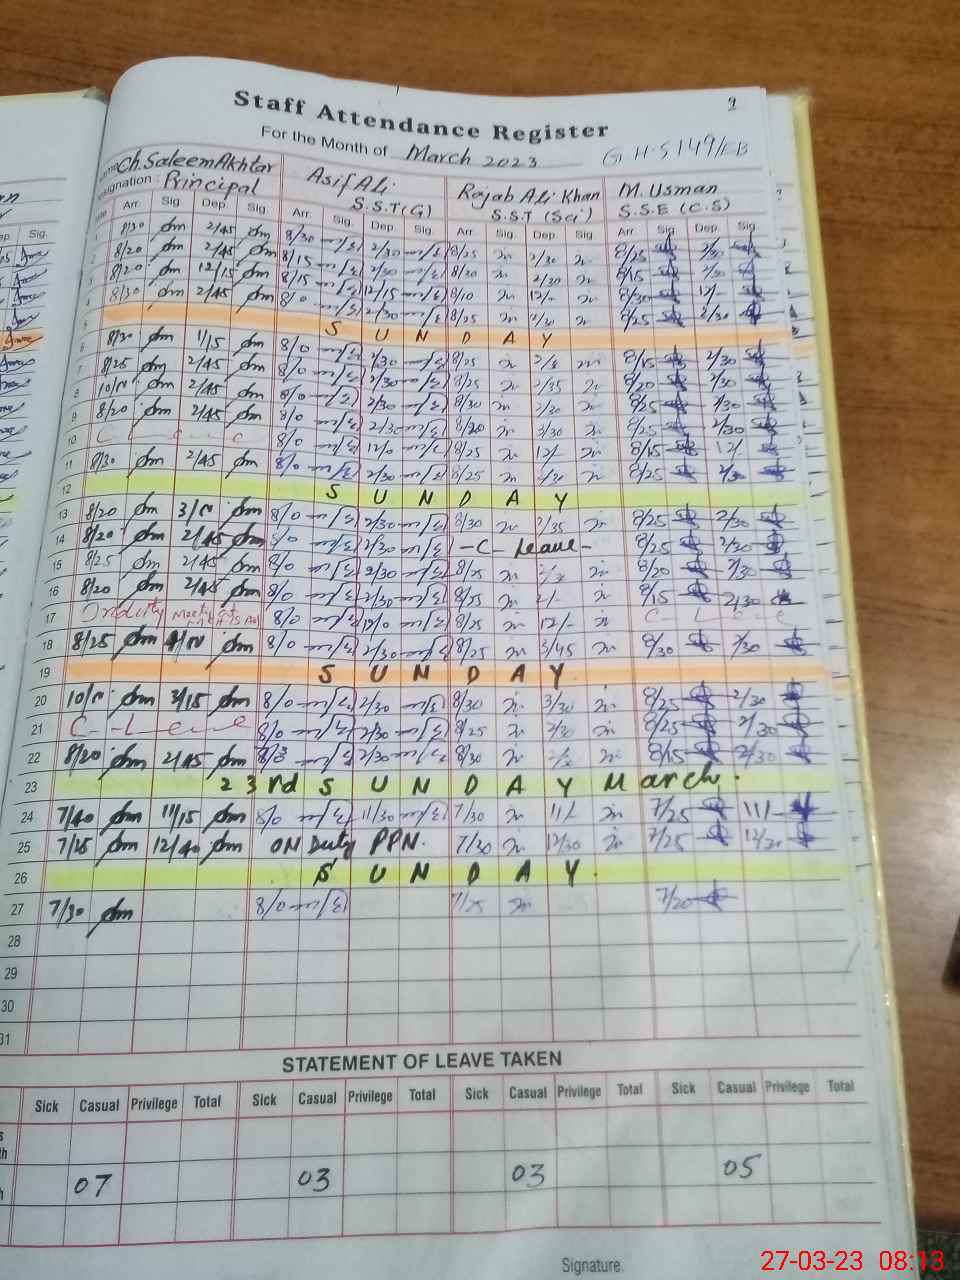 9
Staff Attendance Register
For the Month of March 2023 G H S 149/EB
Ch. Saleem Akhtar Asif Ali Rajab Ali Khan M. Usman
Designation : Principal S.S.T(G) S.S.T (Sci) S.S.E (C.S)
Arr. Sig. Dep. Sig. Arr. Sig. Dep. Sig. Arr. Sig. Dep. Sig. Arr. Sig. Dep. Sig.
8/30 2/45 8/30 2/30 8/25 2/30 8/25 2/30
2 8/20 2/45 8/15 2/30 8/20 2/30 8/15 2/30
3 8/20 12/15 8/15 12/15 8/10 12/- 8/30 12/-
4 8/30 2/45 8/0 2/30 8/25 2/30 8/25 2/30
5 S U N D A Y
6 8/30 1/15 8/0 2/30 8/25 8/15 2/30
7 8/25 2/45 8/0 2/30 8/25 2/35 8/20 2/30
8 2/45 8/0 2/30 8/30 2/30 8/25 2/30
9 8/20 2/45 8/0 2/30 8/20 3/30 8/25 2/30
10 C - Leave 8/0 12/0 8/25 12/- 8/15 12/-
11 8/30 2/45 8/0 2/30 8/25 2/30 8/25 2/30
12 S U N D A Y
13 8/20 8/0 2/30 8/30 2/35 8/25 2/30
14 8/20 2/45 8/0 2/30 - C - Leave - 8/25 2/30
15 8/25 2/45 8/0 2/30 8/25 8/20 2/30
16 8/20 2/45 8/0 2/30 8/25 2/- 8/15 2/30
17 On duty 8/0 12/0 8/25 12/- C - Leave
18 8/25 8/0 2/30 8/25 3/45 8/30 2/30
19 S U N D A Y
20 3/15 8/0 2/30 8/30 3/30 8/25 2/30
21 C - Leave 8/0 2/30 8/25 2/30 8/25 2/30
22 8/20 2/45 2/30 8/30 8/15 2/30
23 23rd S U N D A Y March.
24 7/40 11/15 8/0 11/30 7/30 11/- 7/25 11/-
25 7/25 12/40 ON Duty PPN. 7/30 12/30 7/25 12/30
26 S U N D A Y
27 7/30 8/0 7/25 7/20
28
29
30
31
STATEMENT OF LEAVE TAKEN
Sick Casual Privilege Total Sick Casual Privilege Total Sick Casual Privilege Total Sick Casual Privilege Total
07 03 03 05
Signature.
27-03-23 08:13